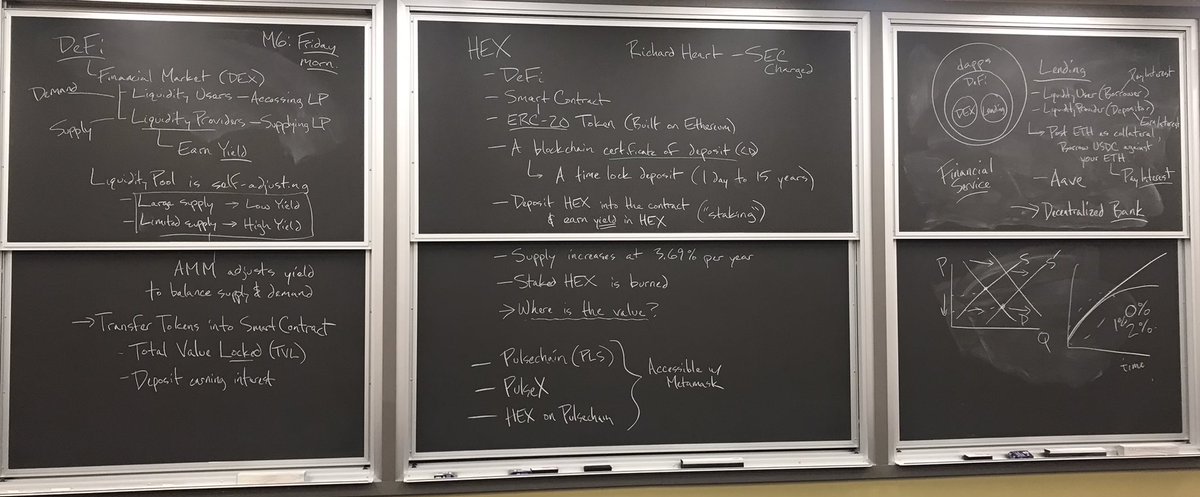 DeFi
M6: Friday
morn.
Financial Market (DEX)
Demand
Liquidity Users — Accessing LP
Supply
Liquidity Providers — Supplying LP
Earn Yield
Liquidity Pool is self-adjusting
- Large supply → Low Yield
- Limited supply → High Yield
AMM adjusts yield
to balance supply & demand
→ Transfer Tokens into Smart Contract
- Total Value Locked (TVL)
- Deposit earning interest
HEX
Richard Heart — SEC
Charged
- DeFi
- Smart Contract
- ERC-20 Token (Built on Ethereum)
- A blockchain certificate of deposit (CD)
↳ A time lock deposit (1 day to 15 years)
- Deposit HEX into the contract
& earn yield in HEX ("staking")
- Supply increases at 3.69% per year
- Staked HEX is burned
→ Where is the value?
- Pulsechain (PLS)
- PulseX
- HEX on Pulsechain
Accessible w/
Metamask
dapps
DeFi
DEX
Lending
Financial
Service
Lending
Pay Interest
- Liquidity User (Borrower)
- Liquidity Provider (Depositor)
Earn Interest
↳ Post ETH as collateral
Borrow USDC against
your ETH
↳ Pay Interest
- Aave
→ Decentralized Bank
P
S
S'
D
Q
0%
1%
2%
time